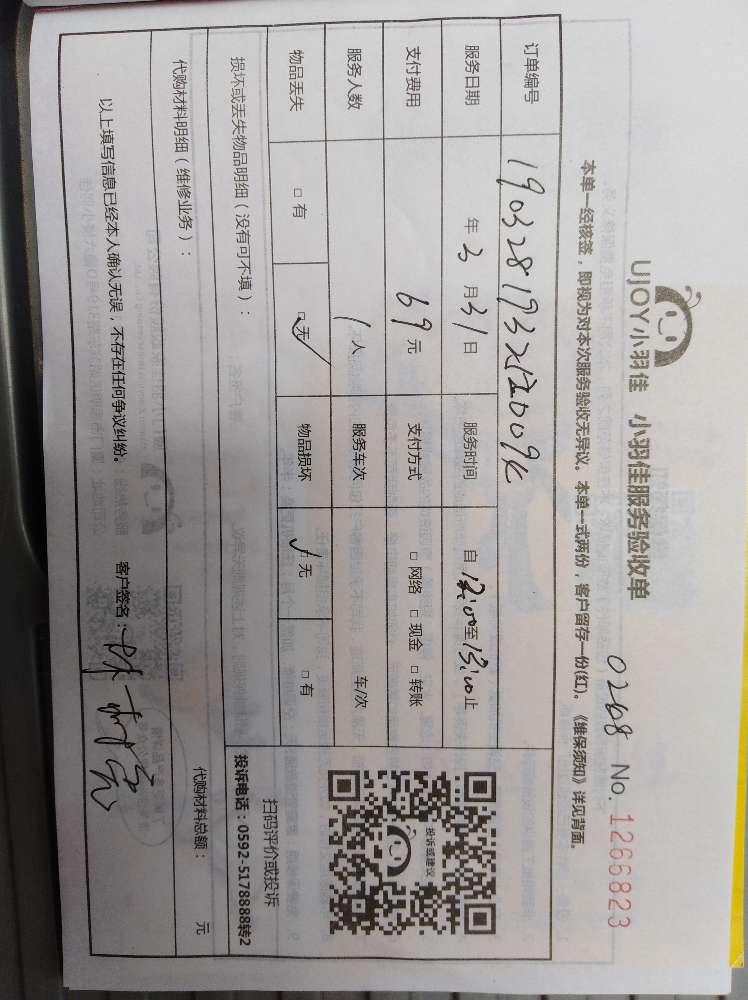 UJOY小羽佳 小羽佳服务验收单
0268 No. 1266823
本单一经核签，即视为对本次服务验收无异议。本单一式两份，客户留存一份(红)。《维保须知》详见背面。
订单编号
服务日期 年 3 月 31 日 服务时间 自 12:00 至 13:00 止
支付费用 69 元 支付方式 □ 网络 □ 现金 □ 转账
服务人数 1 人 服务车次 车/次
物品丢失 □ 有 □ 无 ✓ 物品损坏 ✓ 无 □ 有
投诉或建议
扫码评价或投诉
投诉电话：0592-5178888转2
损坏或丢失物品明细（没有可不填）：
代购材料明细（维修业务）： 代购材料总额： 元
以上填写信息已经本人确认无误，不存在任何争议纠纷。 客户签名：